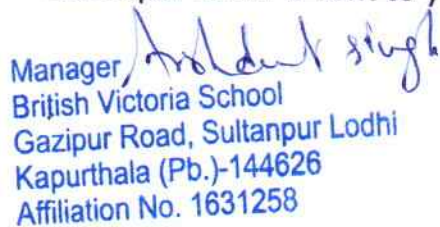 singh
Manager
British Victoria School
Gazipur Road, Sultanpur Lodhi
Kapurthala (Pb.)-144626
Affiliation No. 1631258